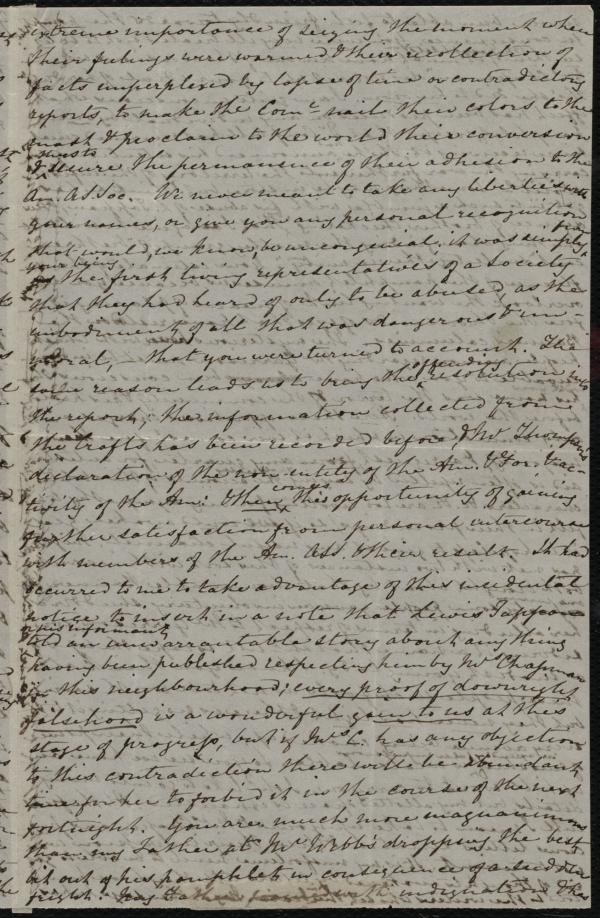 extreme importance of seizing the moment when
their feelings were warmed & their recollection of
facts unperplexed by lapse of time or contradictory
reports, to make the Comee nail their colors to the
mast & proclaim to the world their conversion
thus to
& secure the permanence of their adhesion to the
Am. A.S. Soc. We never meant to take any liberties with
your names, or give you any personal recognition
that would, we know, be uncongenial; it was simply
your being
as the first living representatives of a society
that they had heard of only to be abused, as the
embodiment of all that was dangerous & im-
moral, – that you were turned to account. The
same reason leads us to bring the offending resolution into
the report; the information collected from
the trafts has been recorded before, & Mr. Thompson's
declaration of the non-entity of the Am. & For. & ac-
tivity of the Am: & then comes this opportunity of gaining
further satisfaction from personal intercourse
with members of the Am. Ass. & their result. It had
occurred to me to take advantage of this incidental
notice to insert in a note that Lewis Tappan
told an unwarrantable story about any thing
having been published respecting him by Mrs Chapman
in this neighbourhood; every proof of downright
falsehood is a wonderful gain to us at this
stage of progress, but if Mrs C. has any objection
to this contradiction there will be abundant
time for her to forbid it in the course of the next
fortnight. You are much more magnanimous
than my Father at Mr. Webb's dropping the best
bit out of his pamphlet in consequence of a sudden
fright. My Father with indignation &